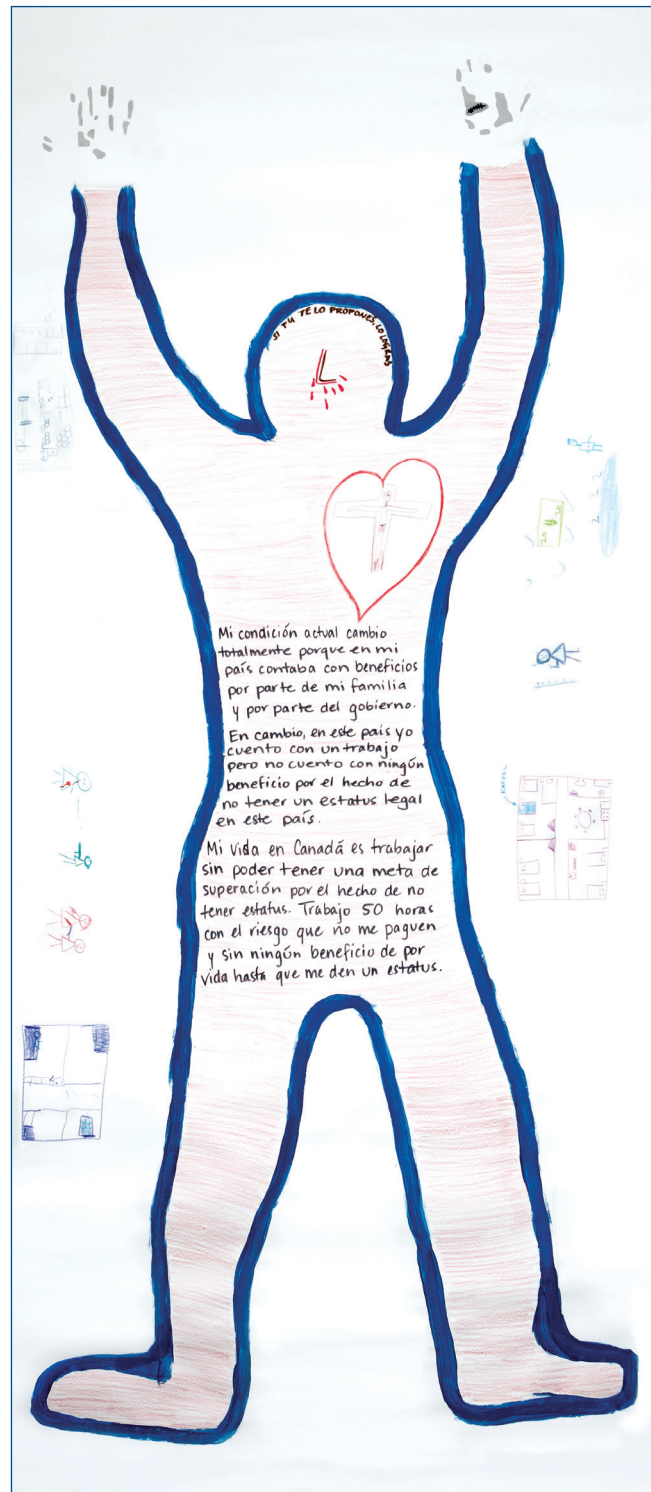 SI TU TE LO PROPONES, LO LOGRAS
Mi condición actual cambio
totalmente porque en mi
país contaba con beneficios
por parte de mi familia
y por parte del gobierno.
En cambio, en este país yo
cuento con un trabajo
pero no cuento con ningún
beneficio por el hecho de
no tener un estatus legal
en este país.
Mi vida en Canadá es trabajar
sin poder tener una meta de
superación por el hecho de no
tener estatus. Trabajo 50 horas
con el riesgo que no me paguen
y sin ningún beneficio de por
vida hasta que me den un estatus.
20 $ 20